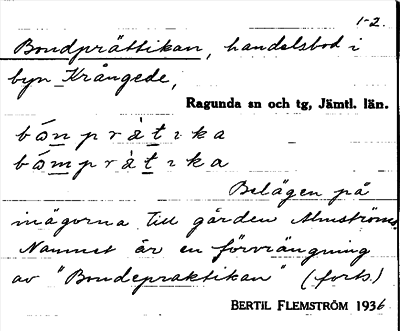 1-2.
Bondprättikan, handelsbod i
byn Krångede,
Ragunda sn och tg, Jämtl. län.
bo̊npràtıka
bo̊mpràtıka
Belägen på
inägorna till gården Almströms.
Namnet är en förvrängning
av "Bondepraktikan" (forts.)
BERTIL FLEMSTRÖM 1936